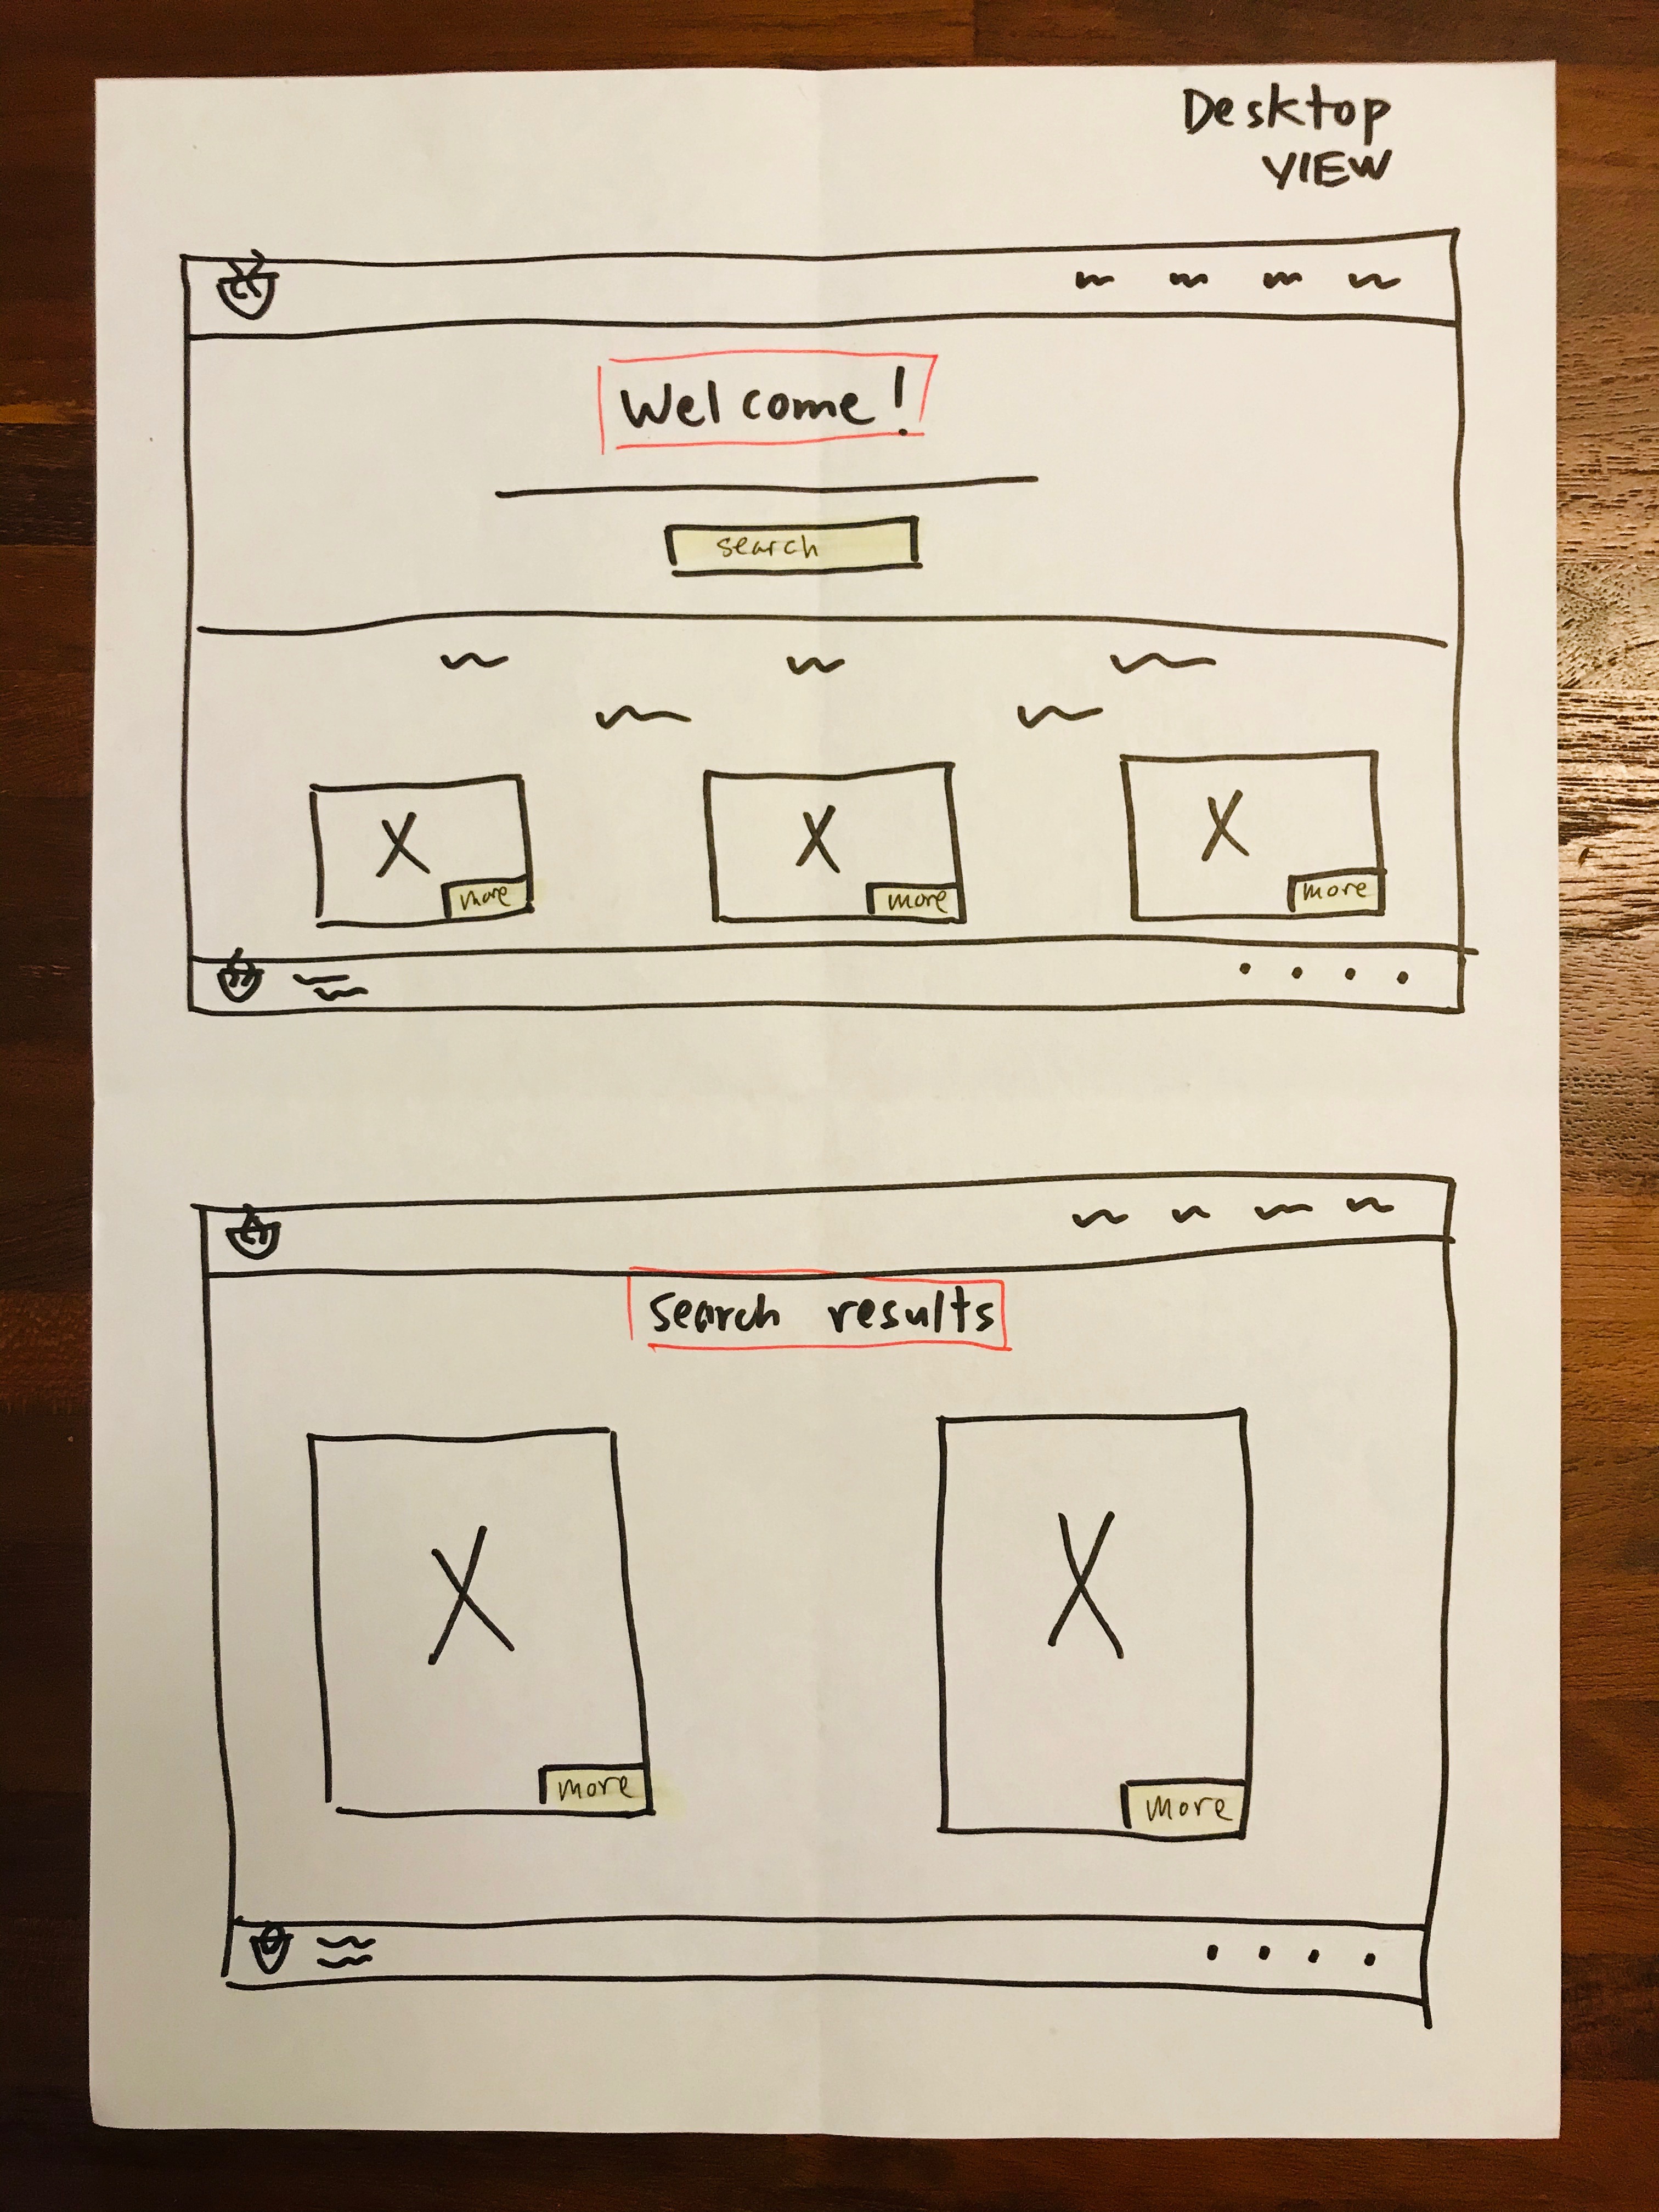 Desktop
VIEW
Welcome!
search
more
more
more
search results
more
more